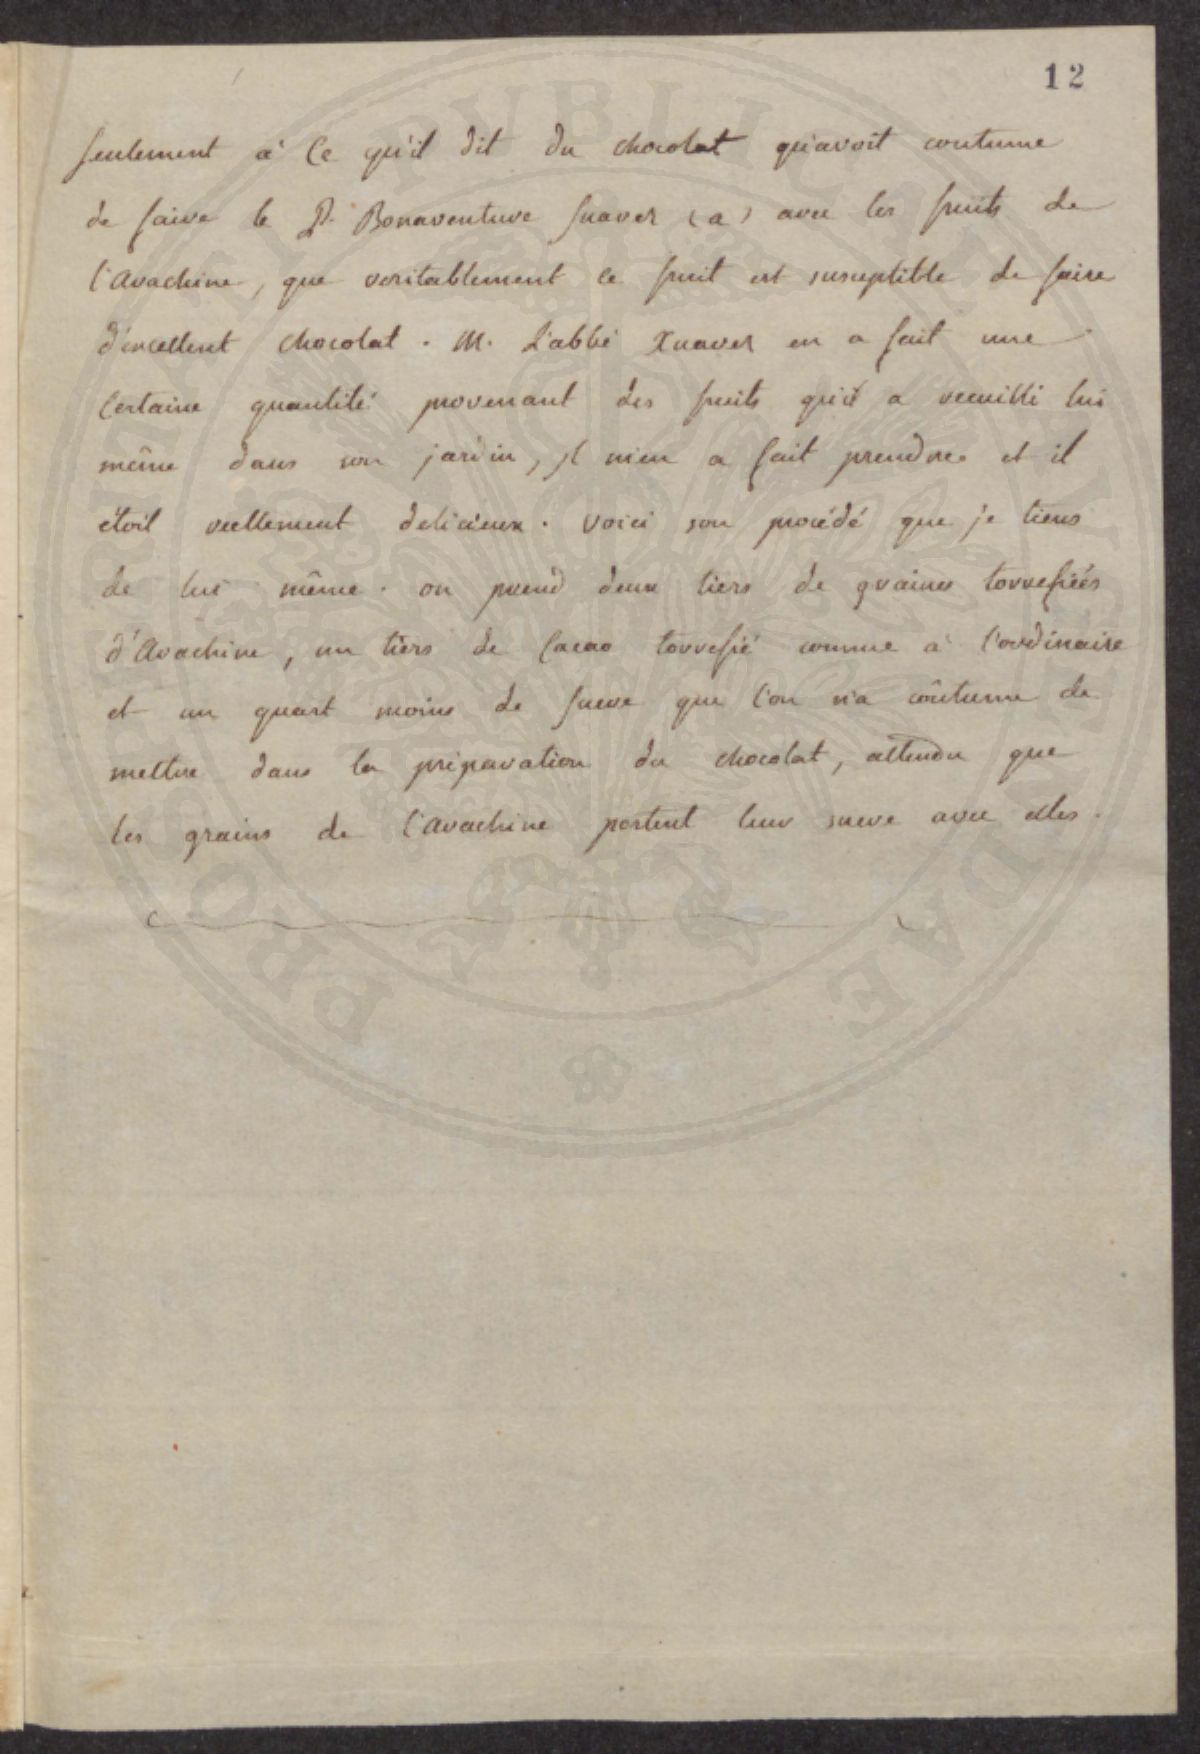 12
seulement à ce qu'il dit du chocolat qu'avoit coutume
de faire le P. Bonaventure Suarez (a) avec les fruits de
l'Arachine, que veritablement ce fruit est suseptible de faire
d'excellent chocolat. M. L'abbé Xuarez en a fait une
certaine quantité provenant des fruits qu'il a recuilli lui
même dans son jardin, jl m'en a fait prendre et il
étoit reellement delicieux. Voici son procédé que je tiens
de lui même. on prend deux tiers de graines torrefiées
d'Arachine, un tiers de Cacao torrefié comme à l'ordinaire
et un quart moins de sucre que l'on n'a coûtume de
mettre dans la préparation du chocolat, attendu que
les grains de l'Arachine portent leur sucre avec elles.